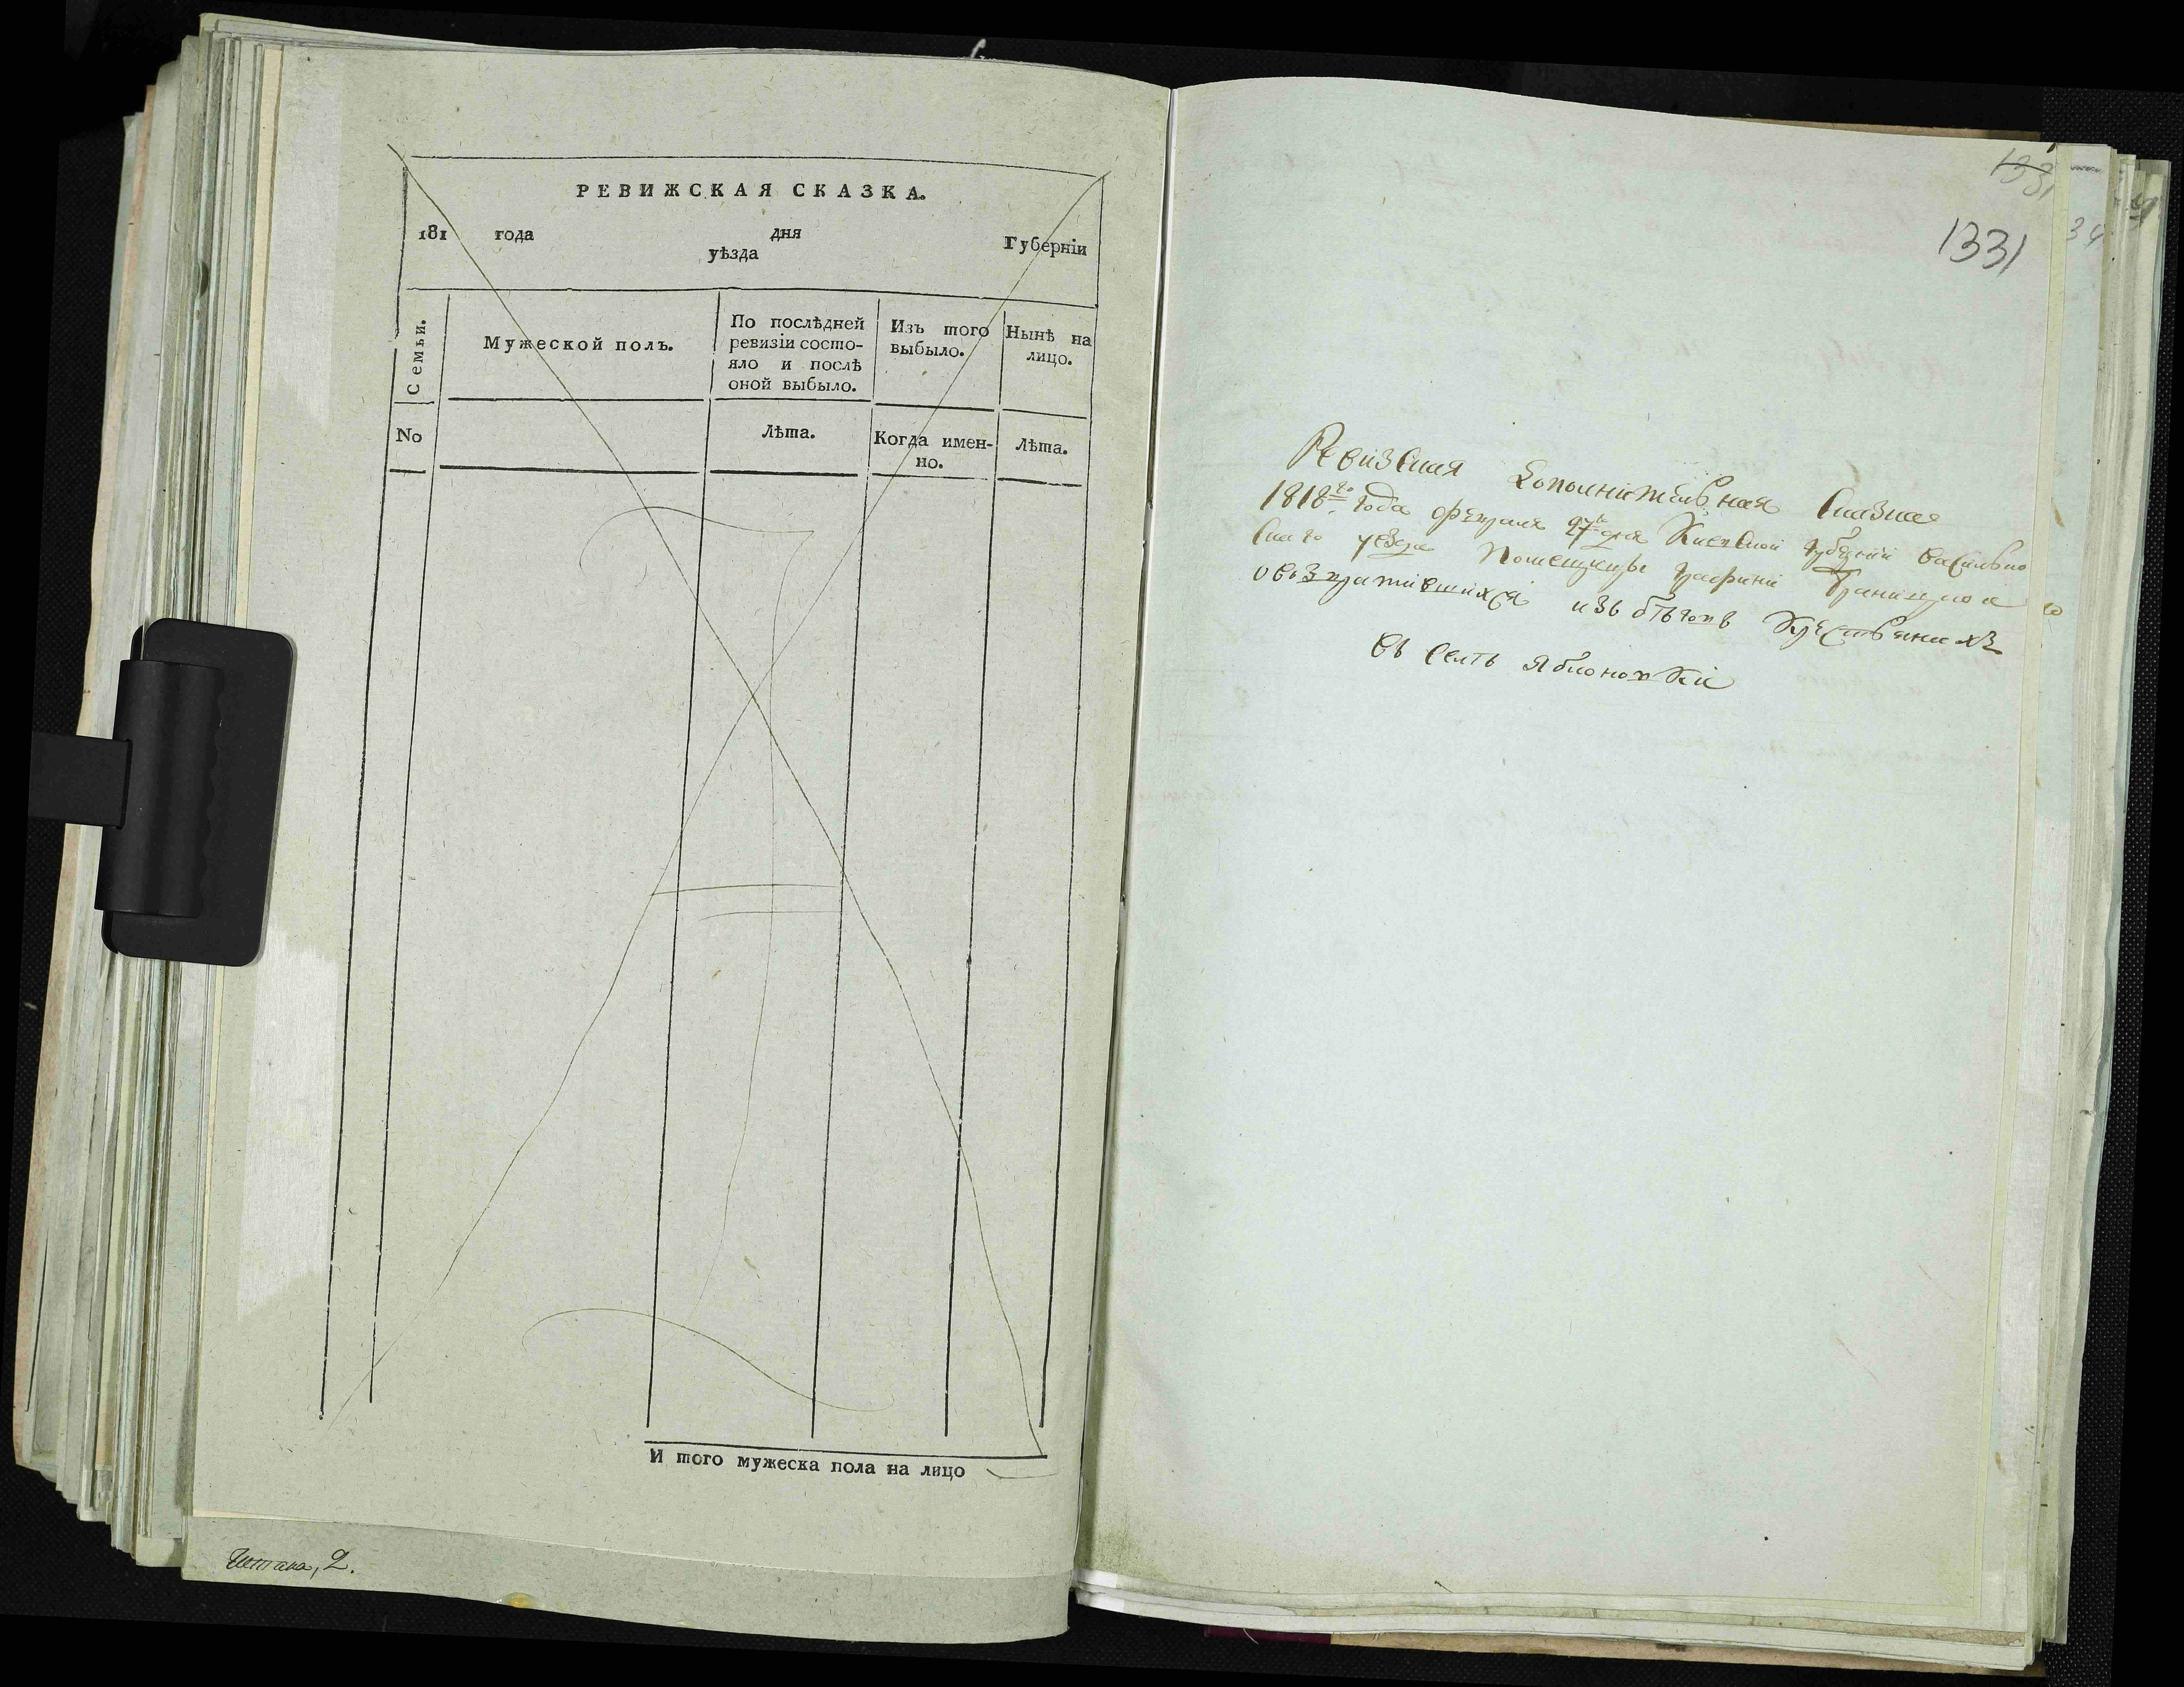 РЕВИЖСКАЯ СКАЗКА.
181 года дня Губернїи
уѣзда
Семьи.
Мужеской полъ.
По послѣдней
ревизїи состо-
яло и послѣ
оной выбыло.
Изъ того
выбыло.
Нынѣ на
лицо.
No
Лѣта.
Когда имен-
но.
Лѣта.
И того мужеска пола на лицо
Читала, 2.
1331
1331
34
Ревизская дополнительная Сказка
1818го года февраля 27го дня Киевской губернии василько
скаго уезда Помещицы графини Браницкой
о возвратившихся изъ бѣговъ Крестьянахъ
въ селѣ Яблоновки